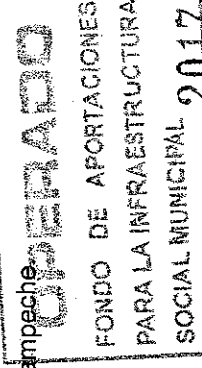 ampeche
OPERADO
FONDO DE APORTACIONES
PARA LA INFRAESTRUCTURA
SOCIAL MUNICIPAL 2017